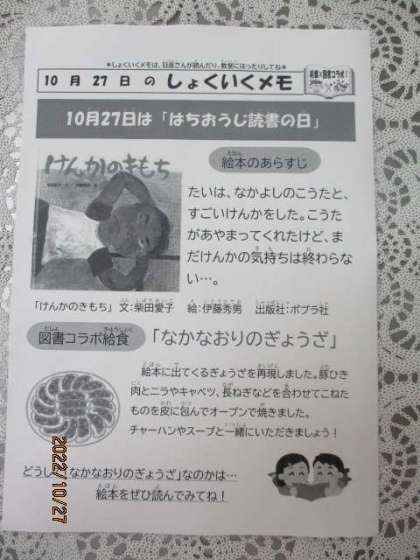 *しょくいくメモは、日直さんが読んだり、教室にはったりしてね*
10月27日のしょくいくメモ
給食×図書コラボ!
10月27日は「はちおうじ読書の日」
けんかのきもち
絵本のあらすじ
たいは、なかよしのこうたと、
すごいけんかをした。こうた
があやまってくれたけど、ま
だけんかの気持ちは終わら
ない…。
「けんかのきもち」 文:柴田愛子 絵:伊藤秀男 出版社:ポプラ社
図書コラボ給食
「なかなおりのぎょうざ」
絵本に出てくるぎょうざを再現しました。豚ひき
肉とニラやキャベツ、長ねぎなどを合わせてこねた
ものを皮に包んでオーブンで焼きました。
チャーハンやスープと一緒にいただきましょう!
どうして「なかなおりのぎょうざ」なのかは…
絵本をぜひ読んでみてね!
2022/10/27